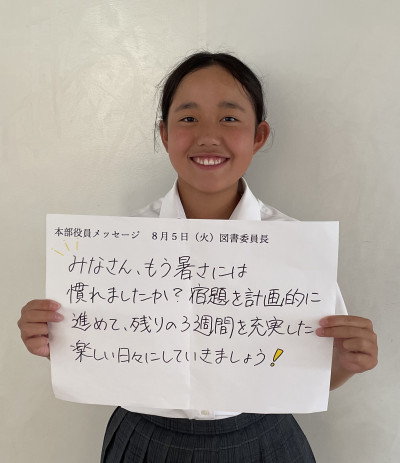 本部役員メッセージ　８月５日（火）図書委員長
みなさん、もう暑さには
慣れましたか？宿題を計画的に
進めて、残りの３週間を充実した
楽しい日々にしていきましょう！